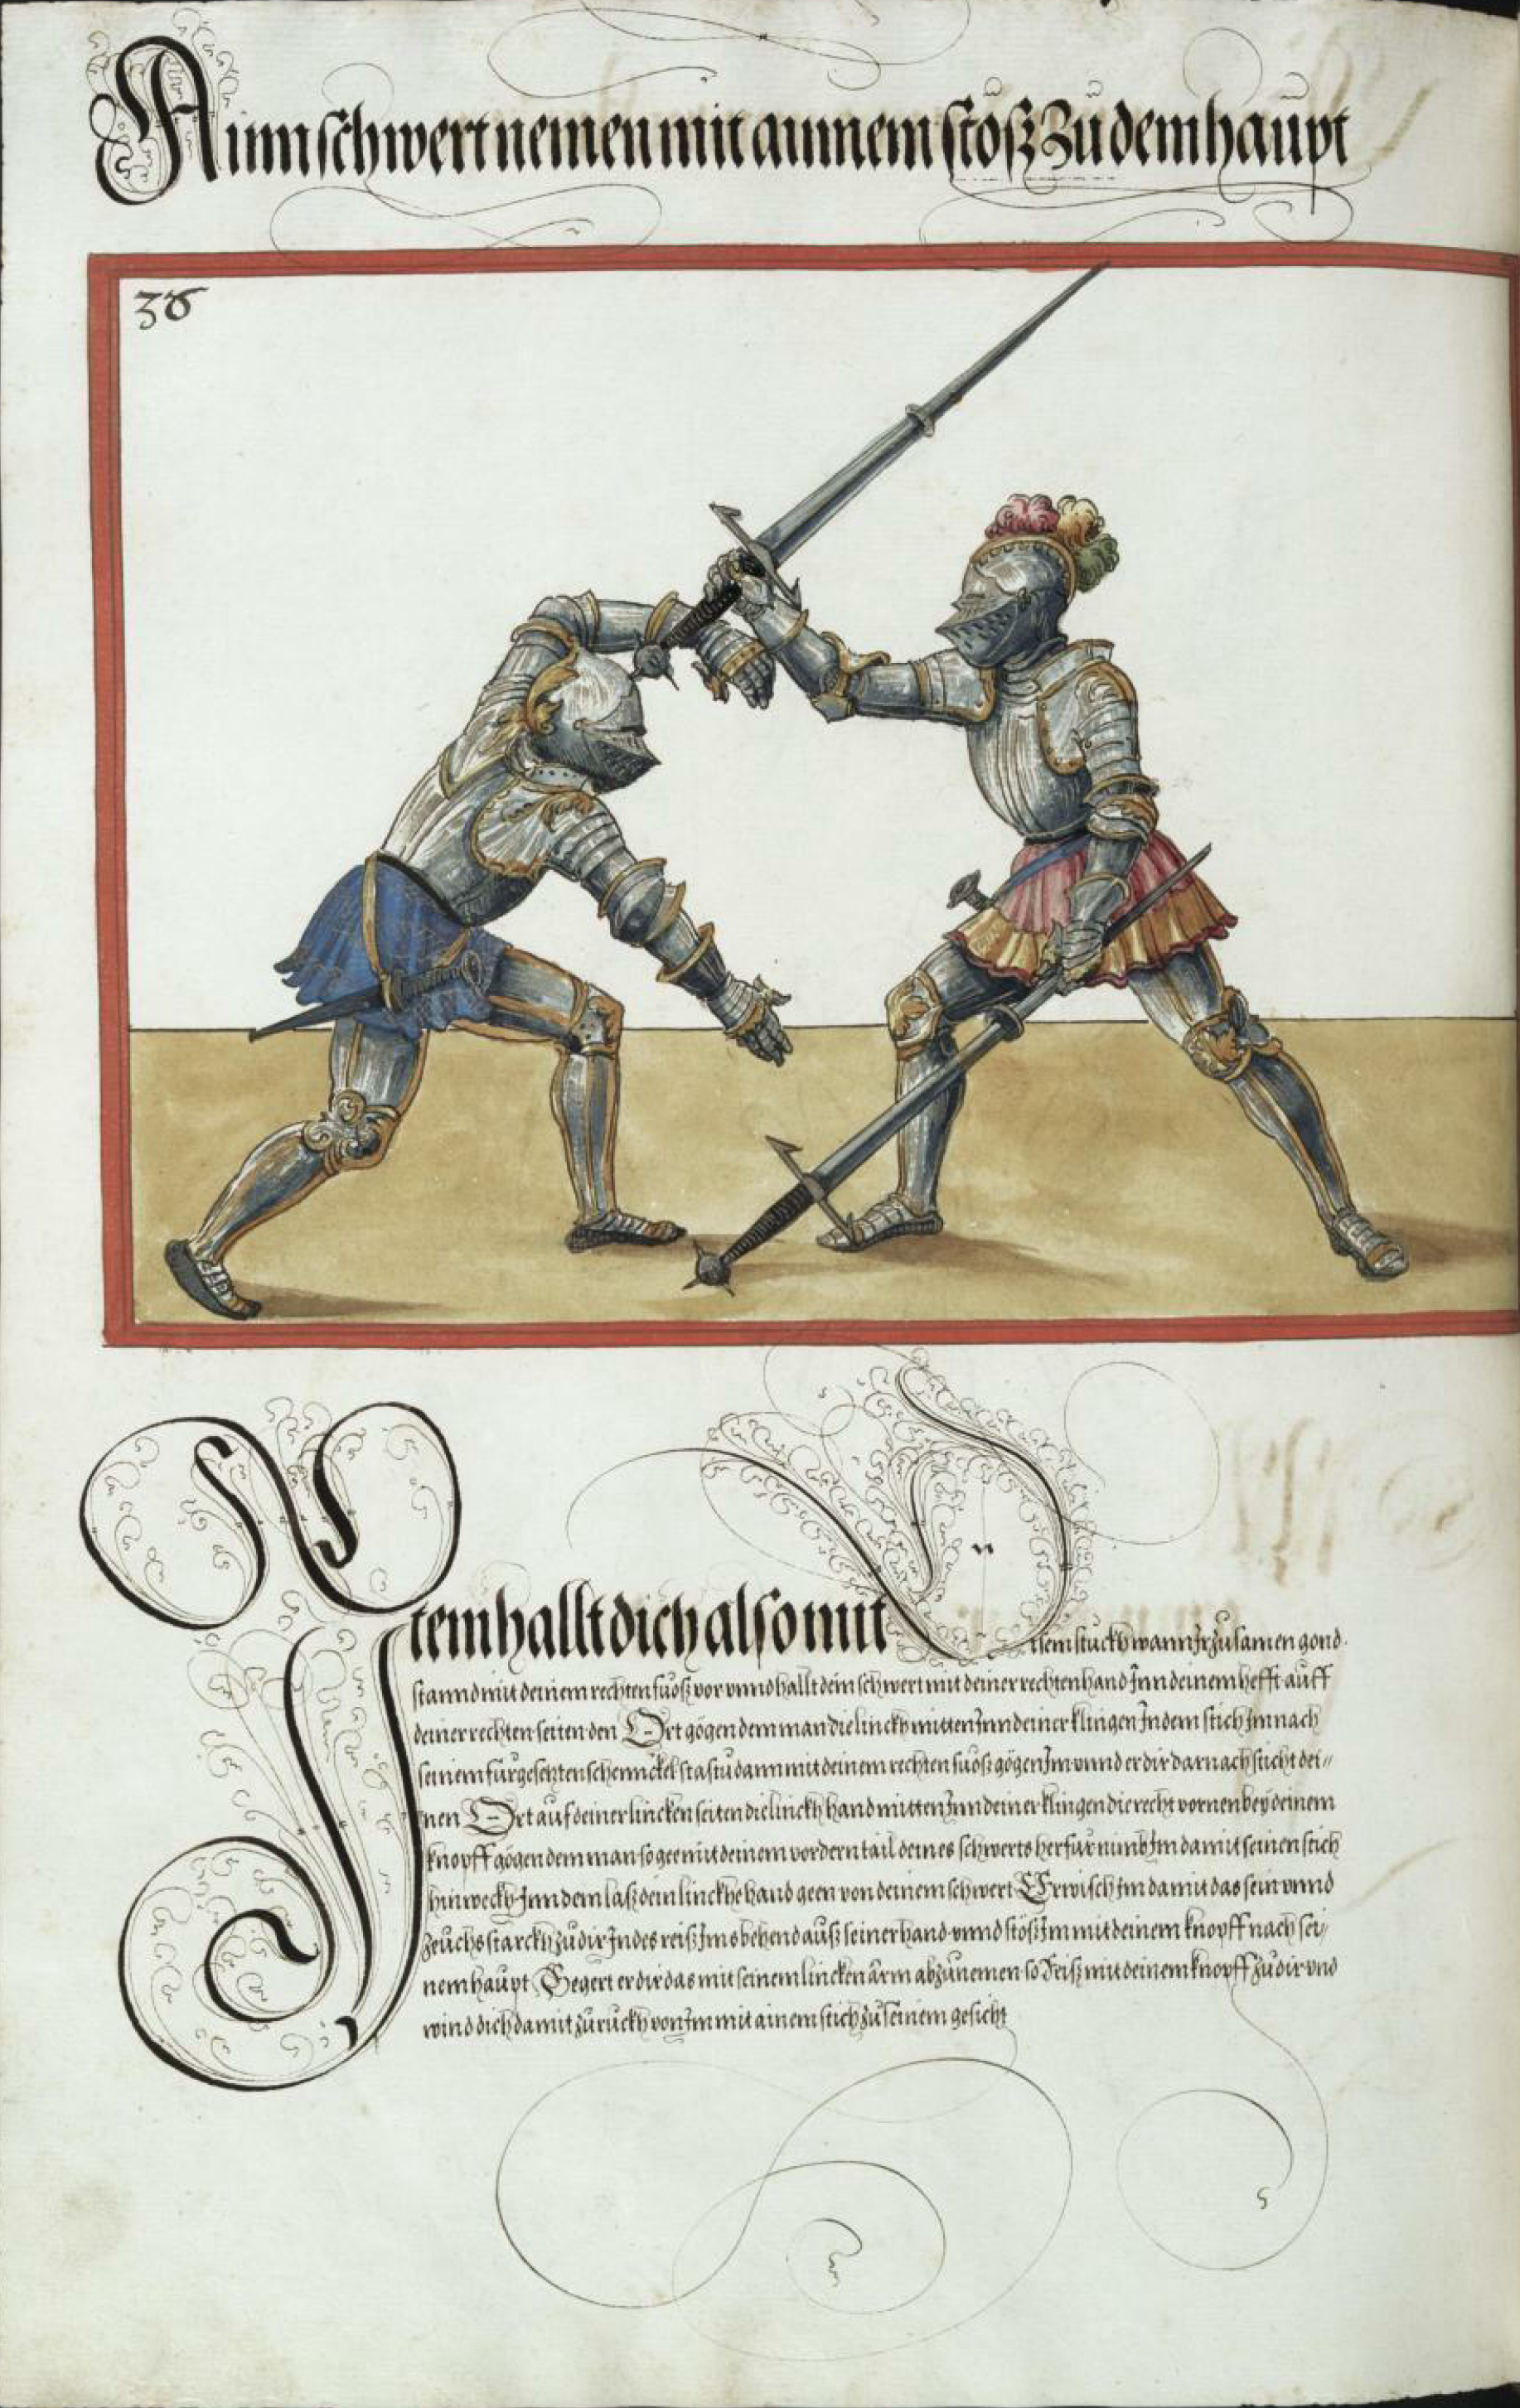 Ainn schwert nemen mit ainnem stosz zu dem haupt
38
Item hallt dich also mit disem stuckh wann Ir zusamen gond
stannd mit deinem rechten fuosz vor vnnd hallt dein schwert mit deiner rechten hand Inn deinem hefft auff
deiner rechten seiten den Ort gögen dem man die linckh mitten Inn deiner klingen Indem stich Im nach
seinem fürgesetzten schennckel stastu dann mit deinem rechten fuosz gögen Im vnnd er dir darnach sticht dei〃
nen Ort auf deiner lincken seiten die linckh hand mitten Inn deiner klingen die recht vornen bey deinem
knopff gögen dem man so gee mit deinem vordern tail deines schwerts herfür nimb Im damit seinen stich
hinweckh Inn dem lasz dein linckhe hand geen von deinem schwert Erwisch Im damit das sein vnnd
zeuchs starckh zu dir Indes reisz Ims behend ausz seiner hand vnnd stösz Im mit deinem knopff nach sei〃
nem haupt Begert er dir das mit seinem lincken arm abzunemen so Reisz mit deinem knopff zu dir vnd
wind dich damit zuruckh von Im mit ainem stich zu seinem gesicht